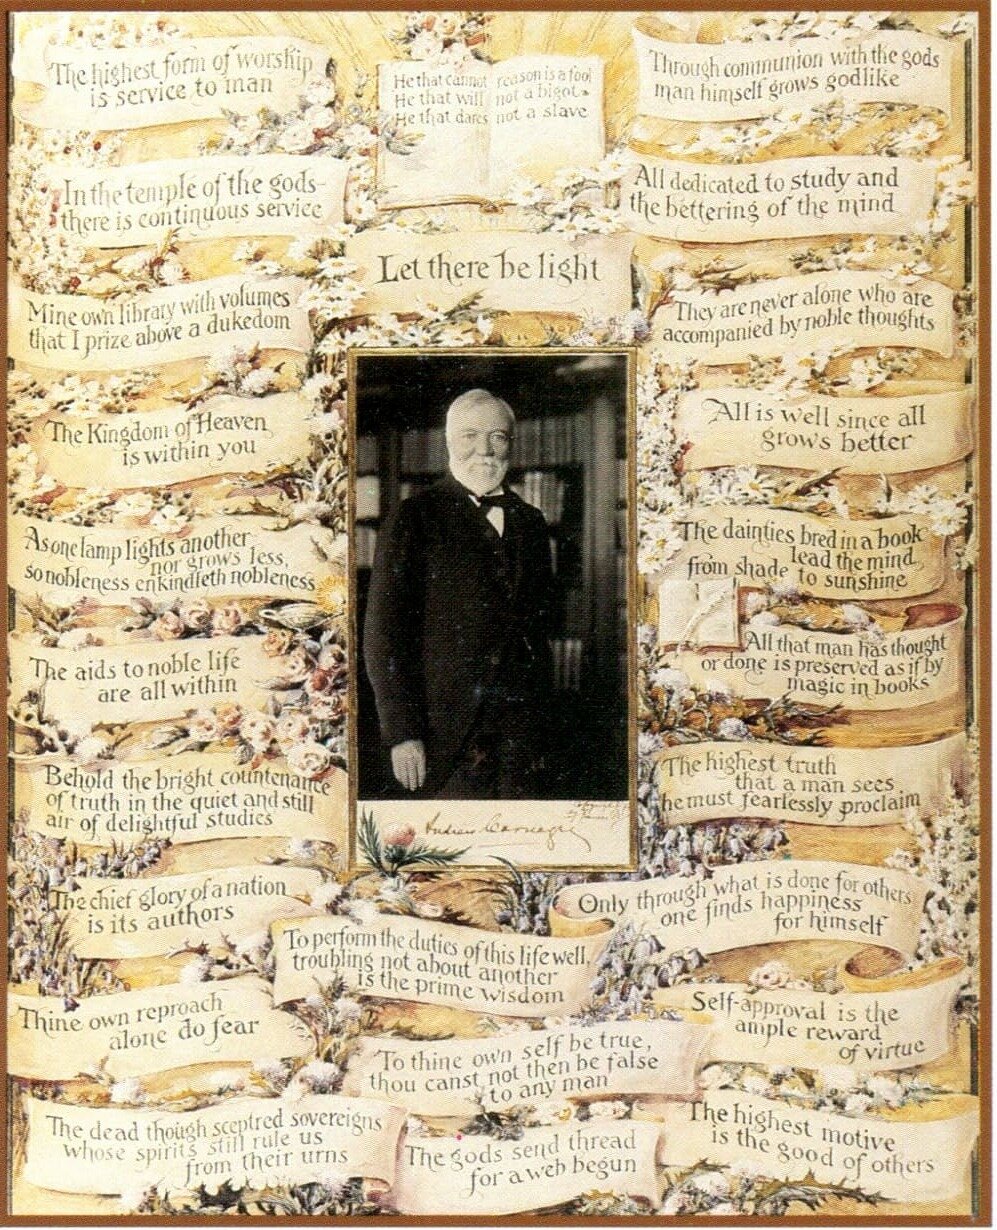 The highest form of worship
is service to man
He that cannot reason is a fool
He that will not a bigot
He that dares not a slave
Through communion with the gods
man himself grows godlike
In the temple of the gods
there is continuous service
All dedicated to study and
the bettering of the mind
Let there be light
Mine own library with volumes
that I prize above a dukedom
They are never alone who are
accompanied by noble thoughts
The Kingdom of Heaven
is within you
All is well since all
grows better
As one lamp lights another
nor grows less,
so nobleness enkindleth nobleness
The dainties bred in a book
lead the mind
from shade to sunshine
The aids to noble life
are all within
All that man has thought
or done is preserved as if by
magic in books
Behold the bright countenance
of truth in the quiet and still
air of delightful studies
The highest truth
that a man sees
he must fearlessly proclaim
Andrew Carnegie
The chief glory of a nation
is its authors
Only through what is done for others
one finds happiness
for himself
To perform the duties of this life well,
troubling not about another
is the prime wisdom
Thine own reproach
alone do fear
Self-approval is the
ample reward
of virtue
To thine own self be true,
thou canst not then be false
to any man
The dead though sceptred sovereigns
whose spirits still rule us
from their urns
The gods send thread
for a web begun
The highest motive
is the good of others